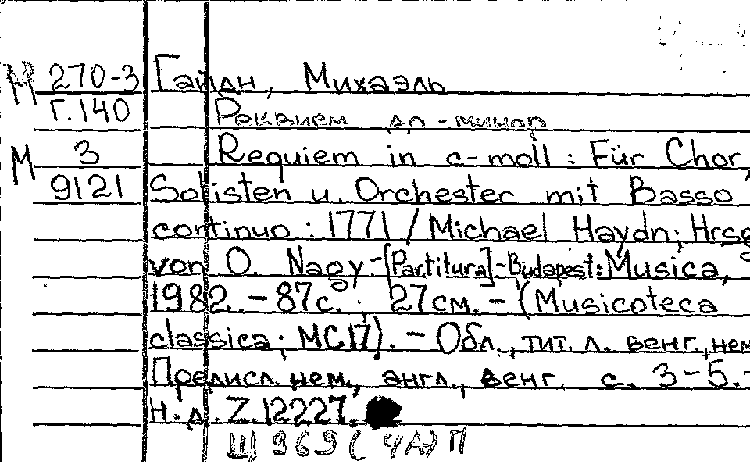 М 270-3 Гайдн, Михаэль
Г.140 Реквием до-минор
М 3 Requiem in c-moll : Für Chor,
9121 Solisten u. Orchester mit Basso
continuo : 1771 / Michael Haydn; Hrsg
von O. Nagy.-[Partitura]-Budapest: Musica,
1982. - 87с. ; 27см. - (Musicoteca
classica; MC17). - Обл., тит. л. венг., нем
Предисл. нем., англ., венг. с. 3-5.-
Н. д. Z.12227.
Щ 969 (4А) П